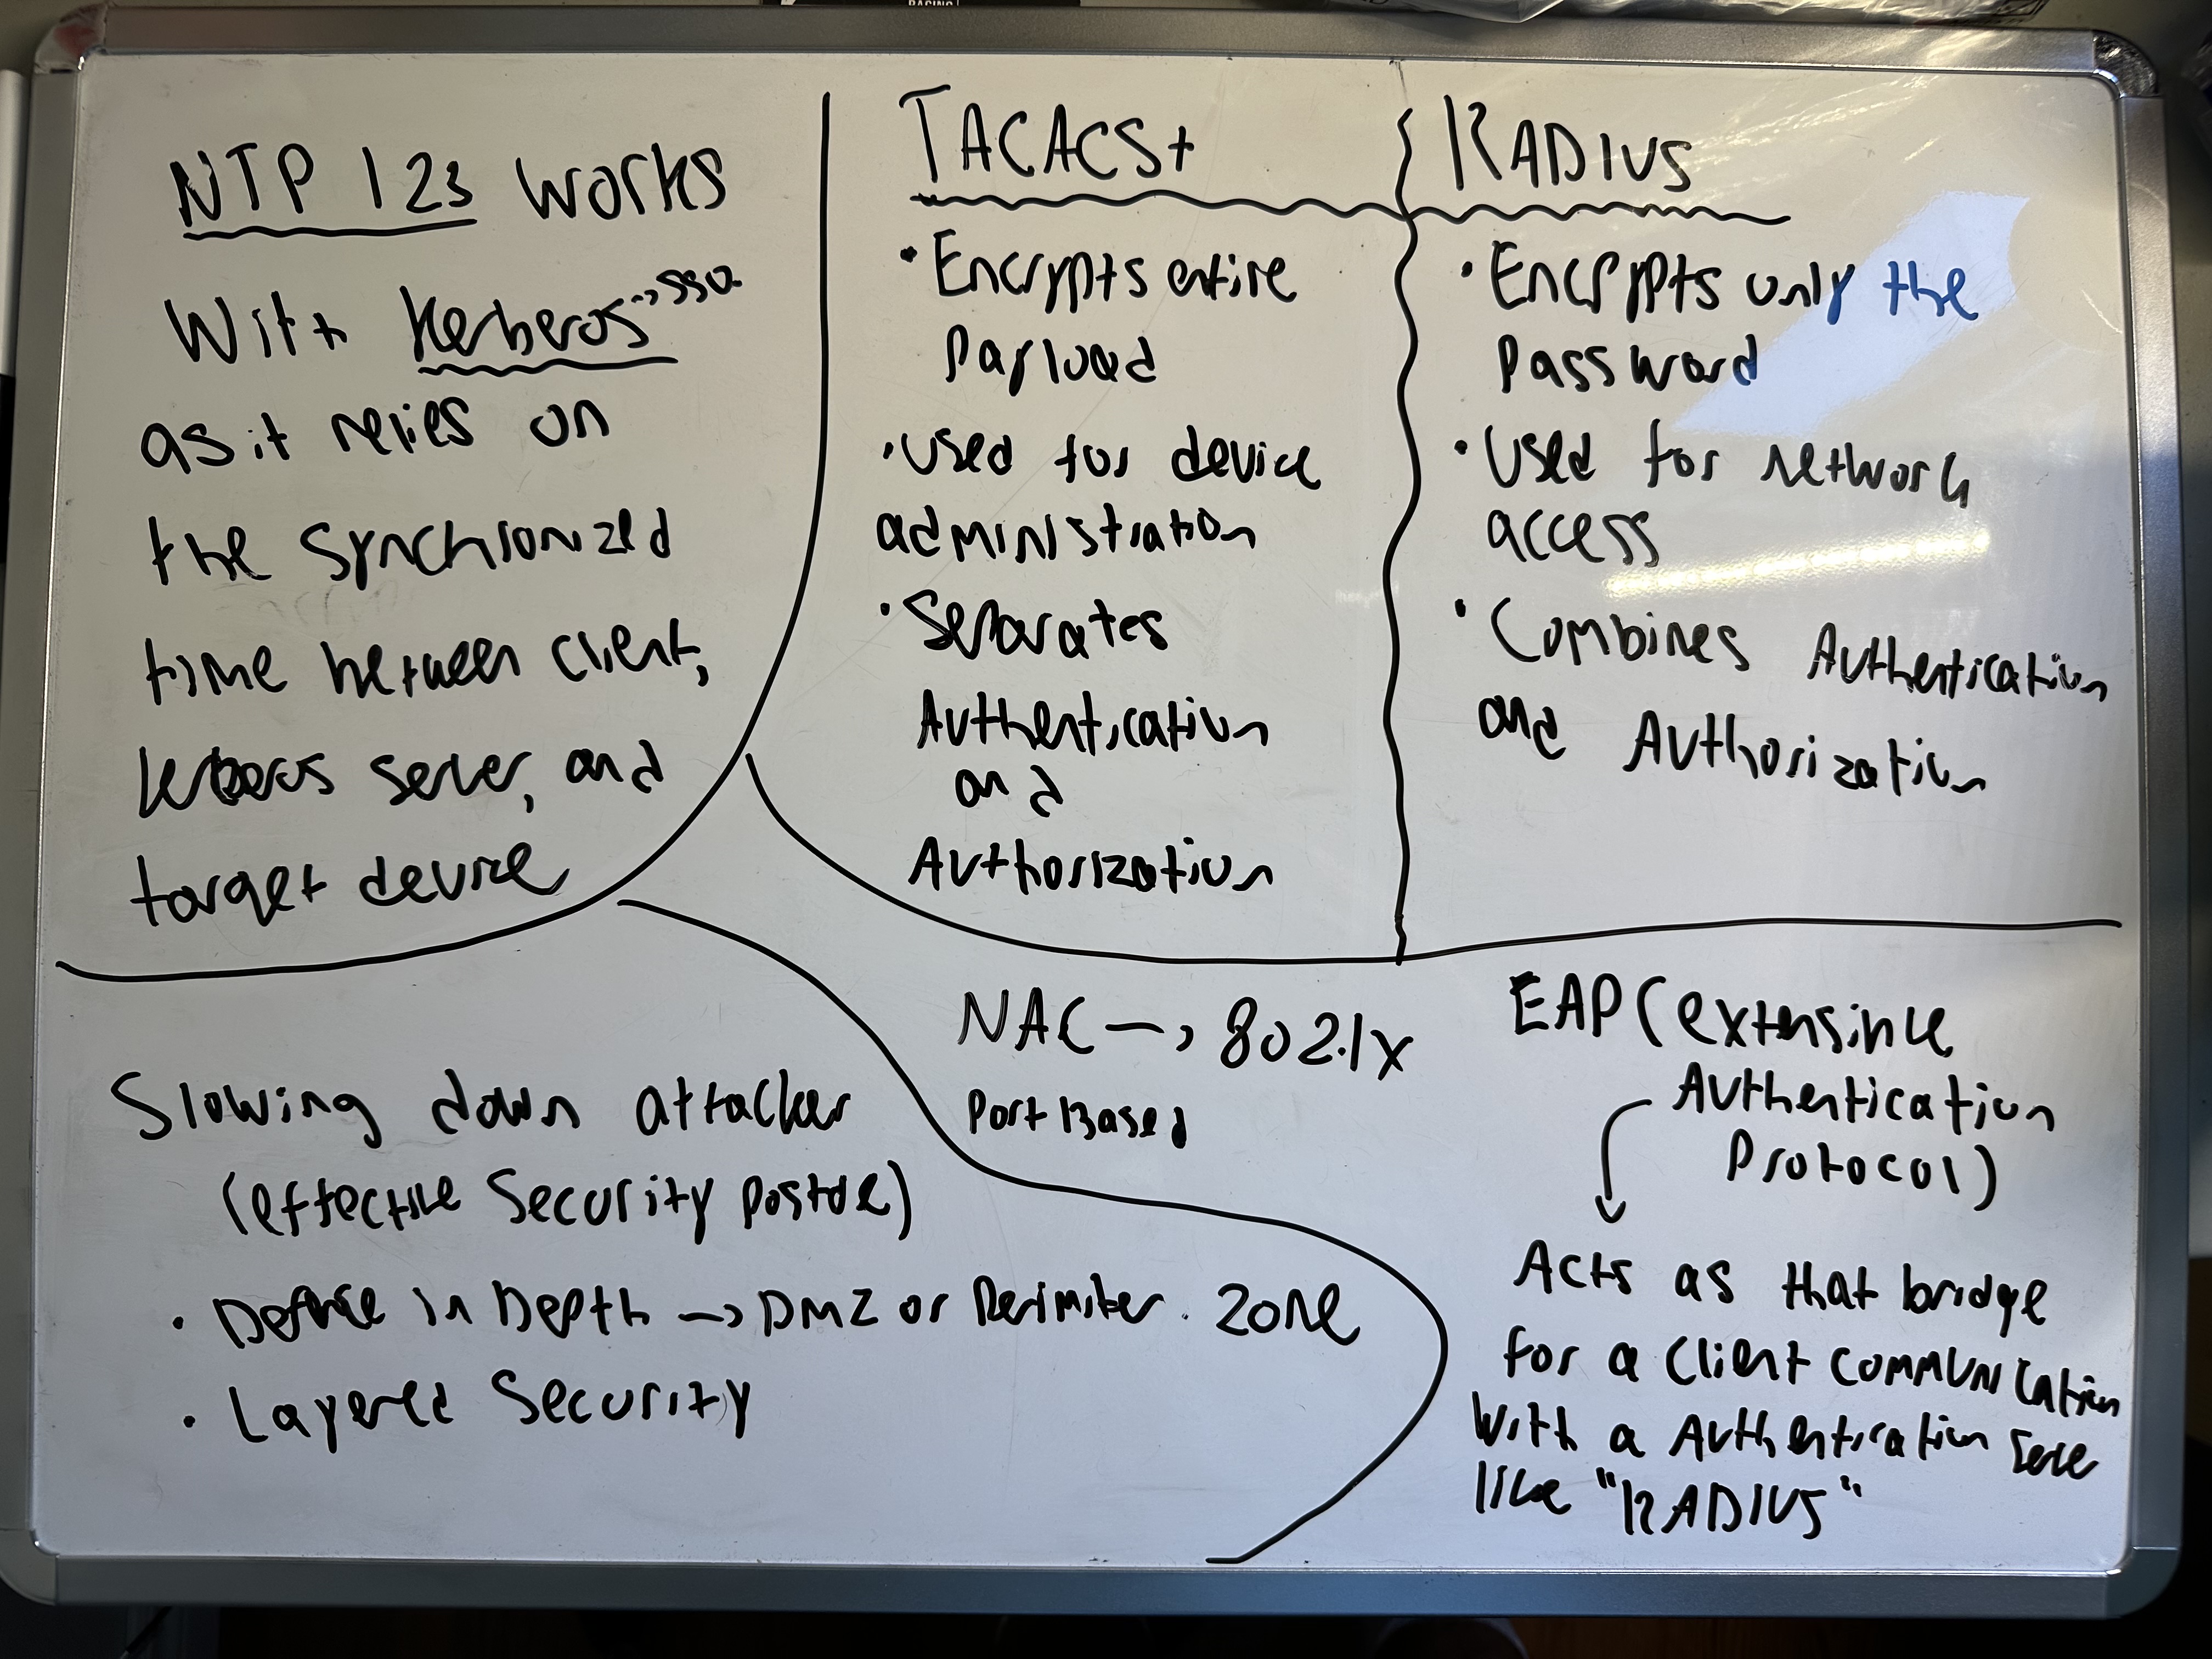 RACING
NTP 123 works
With Kerberos -> SSO.
as it relies on
the synchronized
time between client,
kerberos server, and
target device
TACACS+
• Encrypts entire
Payload
• Used for device
administration
• Separates
Authentication
and
Authorization
RADIUS
• Encrypts only the
Password
• Used for network
access
• Combines Authentication
and Authorization
Slowing down attacker
(effective Security postue)
• Defense in Depth -> DMZ or Perimiter. Zone
• Layered Security
NAC -> 802.1x
Port Based
EAP (extensible
Authentication
Protocol)
Acts as that bridge
for a client communication
with a Authentication
like "RADIUS"